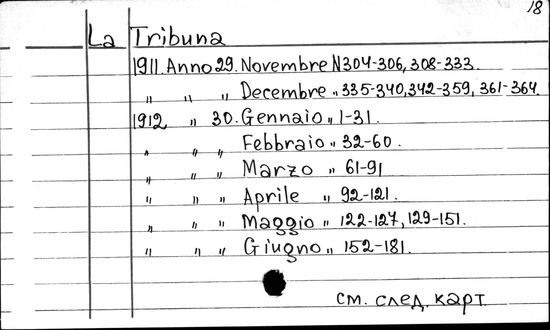 18
La Tribuna
1911. Anno 29. Novembre N304-306, 308-333.
" " " Decembre " 335-340, 342-359, 361-364.
1912 " 30. Gennaio " 1-31.
" " " Febbraio " 32-60.
" " " Marzo " 61-91
" " " Aprile " 92-121.
" " " Maggio " 122-127, 129-151.
" " " Giugno " 152-181.
см. след. карт.